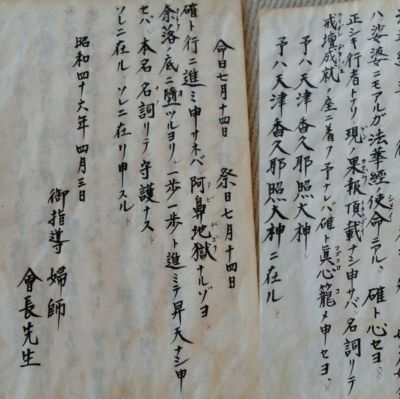 ハ娑婆ニモアルガ法華經ノ使命ニアル、確ト心セヨ
正シキ行者トナリ現ノ果報頂載ナシ申サバ、名詞リテ
戒壇成就ノ座ニ着ク予ナレバ、確ト眞心籠メ申セヨ、
予ハ天津香久耶照大神
予ハ天津香久耶照大神ニ在ル
命日七月十四日 祭日七月十四日
確ト行ニ進ミ申サネバ阿鼻地獄ナルゾヨ
奈落ノ底ニ墮ツルヨリ、一歩一歩ト進ミテ昇天ナシ申
セバ本名名詞リテ守護ナス
ソレニ在ル、ソレニ在リ申スル
昭和四十六年四月三日
御指導 婦師
會長先生